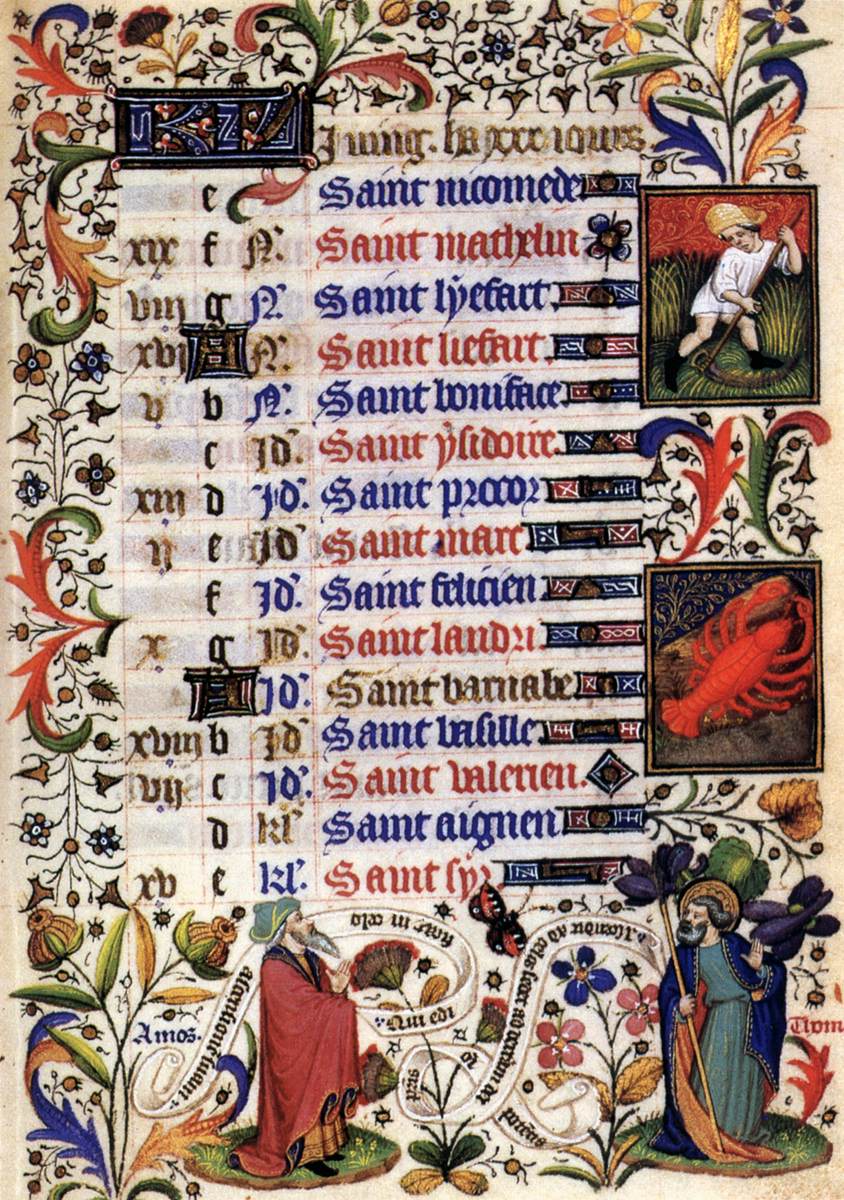 KL Juing. ha xxx iours.
e Saint nicomede
xix f N. Saint mathelin
viij g N. Saint lyefart.
xvj A N. Saint liefart.
v b N. Saint boniface.
c Jd. Saint ysidoire.
xiij d Jd. Saint procor
ij e Jd Saint marc
f Jd. Saint felicien
x g Jd. Saint landri.
A Jd. Saint barnabe
xviij b Jd Saint basille
vij c Jd. Saint valerien.
d kl' Saint aignen
xv e kl'. Saint syr
Amos.
Qui edi
ficat in celo
ascensionem suam
Ascendit ad celos sedet ad dexteram dei
patris